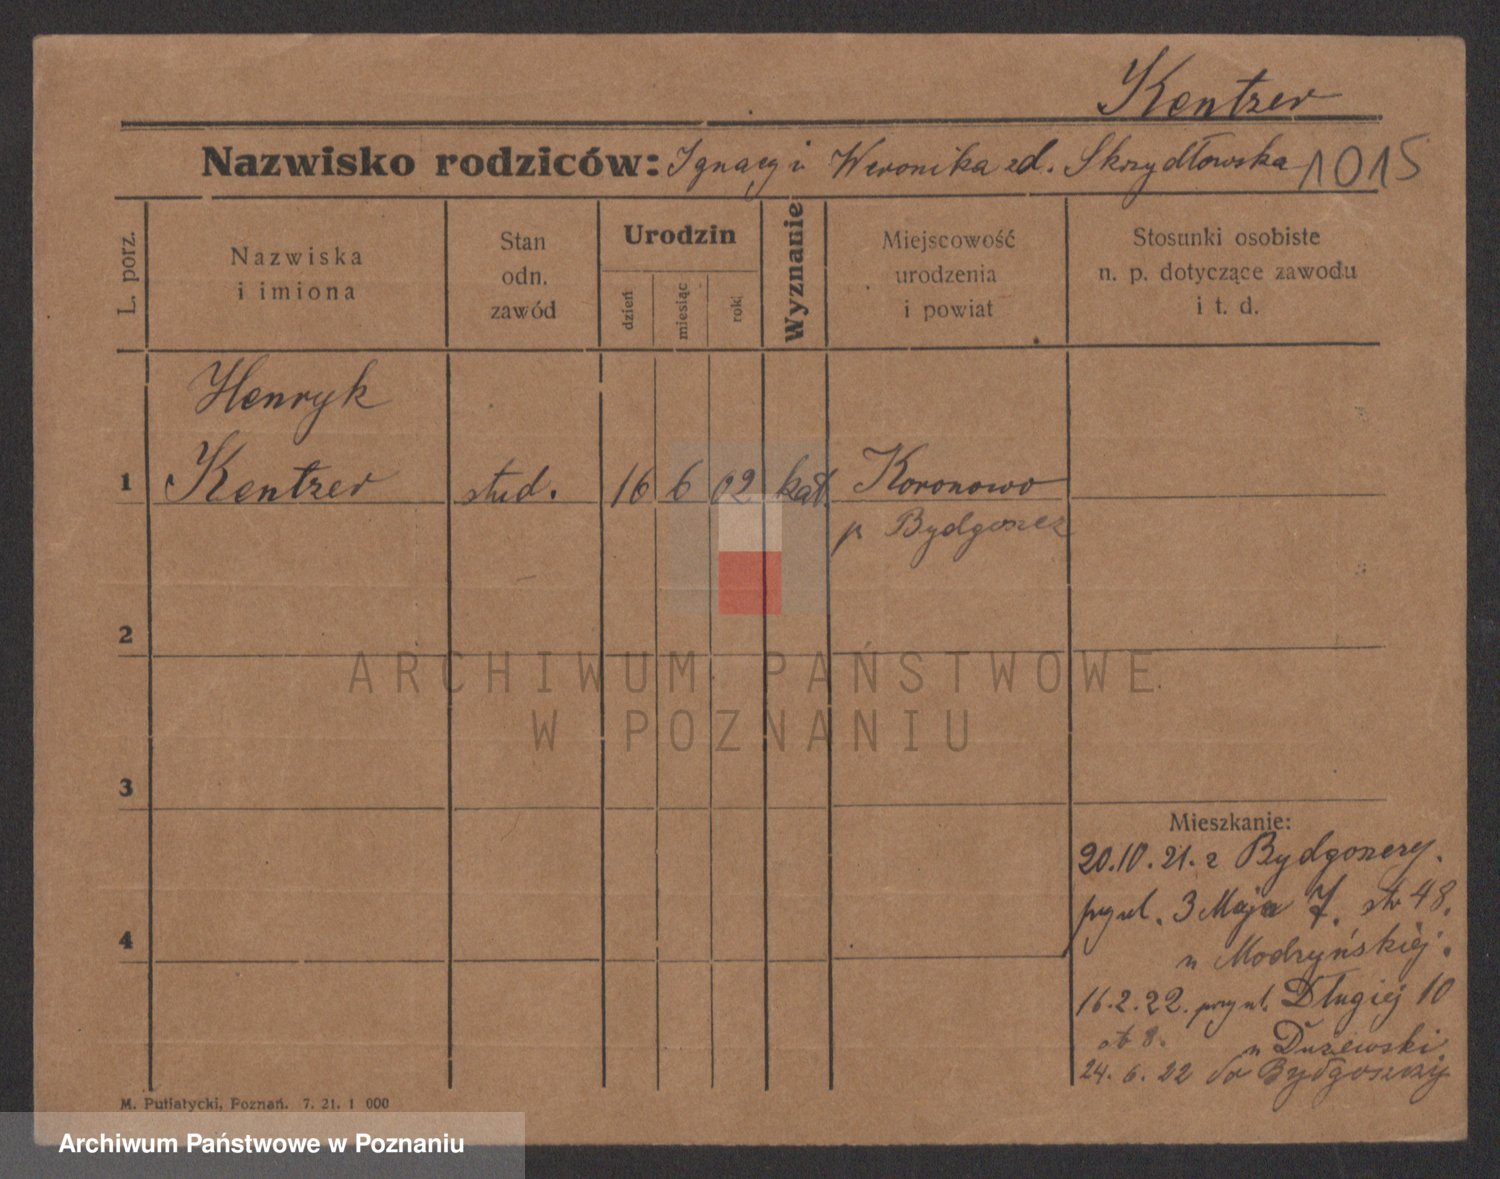 Kentzer
Nazwisko rodziców: Ignacy i Weronika zd. Skrzydłowska 1015
L. porz.
Nazwiska
i imiona
Stan
odn.
zawód
Urodzin
dzień
miesiąc
rok
Wyznanie
Miejscowość
urodzenia
i powiat
Stosunki osobiste
n. p. dotyczące zawodu
i t. d.
Henryk
1 Kentzer stud. 16 6 02 kat. Koronowo
p Bydgoszcz
2
3
4
Mieszkanie:
20.10.21. z Bydgoszczy.
przy ul. 3 Maja 7. str 48.
u Modrzyńskiej.
16.2.22. przy ul. Długiej 10
str 8. u Dużewski
24. 6. 22 do Bydgoszczy
M. Putiatycki, Poznań. 7. 21. 1 000
ARCHIWUM PAŃSTWOWE
W POZNANIU
Archiwum Państwowe w Poznaniu